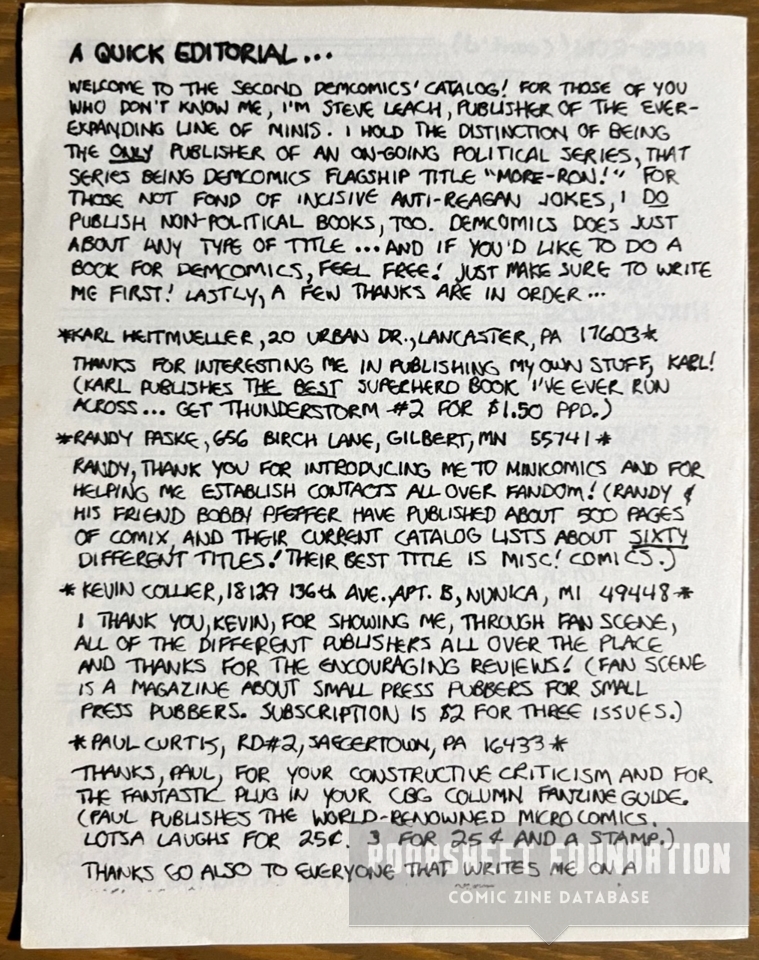 A QUICK EDITORIAL...
WELCOME TO THE SECOND DEMCOMICS' CATALOG! FOR THOSE OF YOU
WHO DON'T KNOW ME, I'M STEVE LEACH, PUBLISHER OF THE EVER-
EXPANDING LINE OF MINIS. I HOLD THE DISTINCTION OF BEING
THE ONLY PUBLISHER OF AN ON-GOING POLITICAL SERIES, THAT
SERIES BEING DEMCOMICS FLAGSHIP TITLE "MORE-RON!" FOR
THOSE NOT FOND OF INCISIVE ANTI-REAGAN JOKES, I DO
PUBLISH NON-POLITICAL BOOKS, TOO. DEMCOMICS DOES JUST
ABOUT ANY TYPE OF TITLE... AND IF YOU'D LIKE TO DO A
BOOK FOR DEMCOMICS, FEEL FREE! JUST MAKE SURE TO WRITE
ME FIRST! LASTLY, A FEW THANKS ARE IN ORDER...
*KARL HEITMUELLER, 20 URBAN DR., LANCASTER, PA 17603*
THANKS FOR INTERESTING ME IN PUBLISHING MY OWN STUFF, KARL!
(KARL PUBLISHES THE BEST SUPERHERO BOOK I'VE EVER RUN
ACROSS... GET THUNDERSTORM #2 FOR $1.50 PPD.)
*RANDY PASKE, 656 BIRCH LANE, GILBERT, MN 55741*
RANDY, THANK YOU FOR INTRODUCING ME TO MINICOMICS AND FOR
HELPING ME ESTABLISH CONTACTS ALL OVER FANDOM! (RANDY &
HIS FRIEND BOBBY PFEFFER HAVE PUBLISHED ABOUT 500 PAGES
OF COMIX, AND THEIR CURRENT CATALOG LISTS ABOUT SIXTY
DIFFERENT TITLES! THEIR BEST TITLE IS MISC! COMICS.)
* KEVIN COLLIER, 18129 136th AVE., APT. B, NUNICA, MI 49448*
I THANK YOU, KEVIN, FOR SHOWING ME, THROUGH FAN SCENE,
ALL OF THE DIFFERENT PUBLISHERS ALL OVER THE PLACE
AND THANKS FOR THE ENCOURAGING REVIEWS! (FAN SCENE
IS A MAGAZINE ABOUT SMALL PRESS PUBBERS FOR SMALL
PRESS PUBBERS. SUBSCRIPTION IS $2 FOR THREE ISSUES.)
*PAUL CURTIS, RD#2, SAEGERTOWN, PA 16433*
THANKS, PAUL, FOR YOUR CONSTRUCTIVE CRITICISM AND FOR
THE FANTASTIC PLUG IN YOUR CBG COLUMN FANZINE GUIDE.
(PAUL PUBLISHES THE WORLD-RENOWNED MICROCOMICS.
LOTSA LAUGHS FOR 25¢. 3 FOR 25¢ AND A STAMP.)
THANKS GO ALSO TO EVERYONE THAT WRITES ME ON A
POOPSHEET FOUNDATION
COMIC ZINE DATABASE